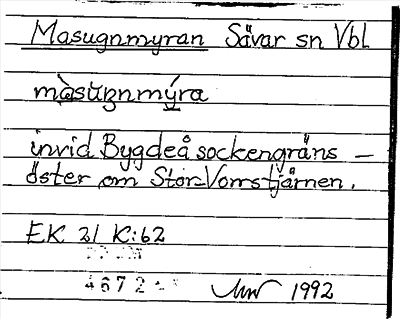 Masugnmyran Sävar sn Vbl
màsùgnmýra
invid Bygdeå sockengräns –
öster om Stor-Vormstjärnen.
EK 21 K:62
4672
1992